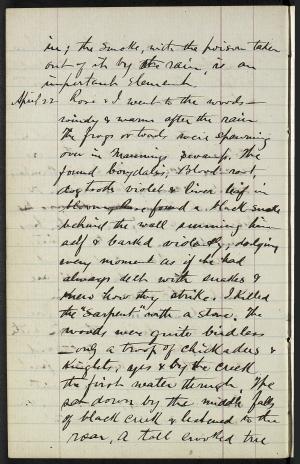 in; the smoke, with the poison taken
out of it by the rain, is an
important element.
April 22 Rose & I went to the woods –
windy & warm after the rain
the frogs or toads were spawning
over in Mannings swamp. We
found corydales, Blood-root,
dog tooth violet & liver leaf in
a black snake
behind the wall sunning him
self & barked violently, dodging
every moment as if he had
always delt with snakes &
knew how they strike. I killed
the "sarpent" with a stone. The
woods were quite birdless
– only a troop of chickadees &
kinglets, yes & by the creek
the first water thrush. We
sat down by the middle falls
of black creek & listened to the
roar, a tall crooked tree